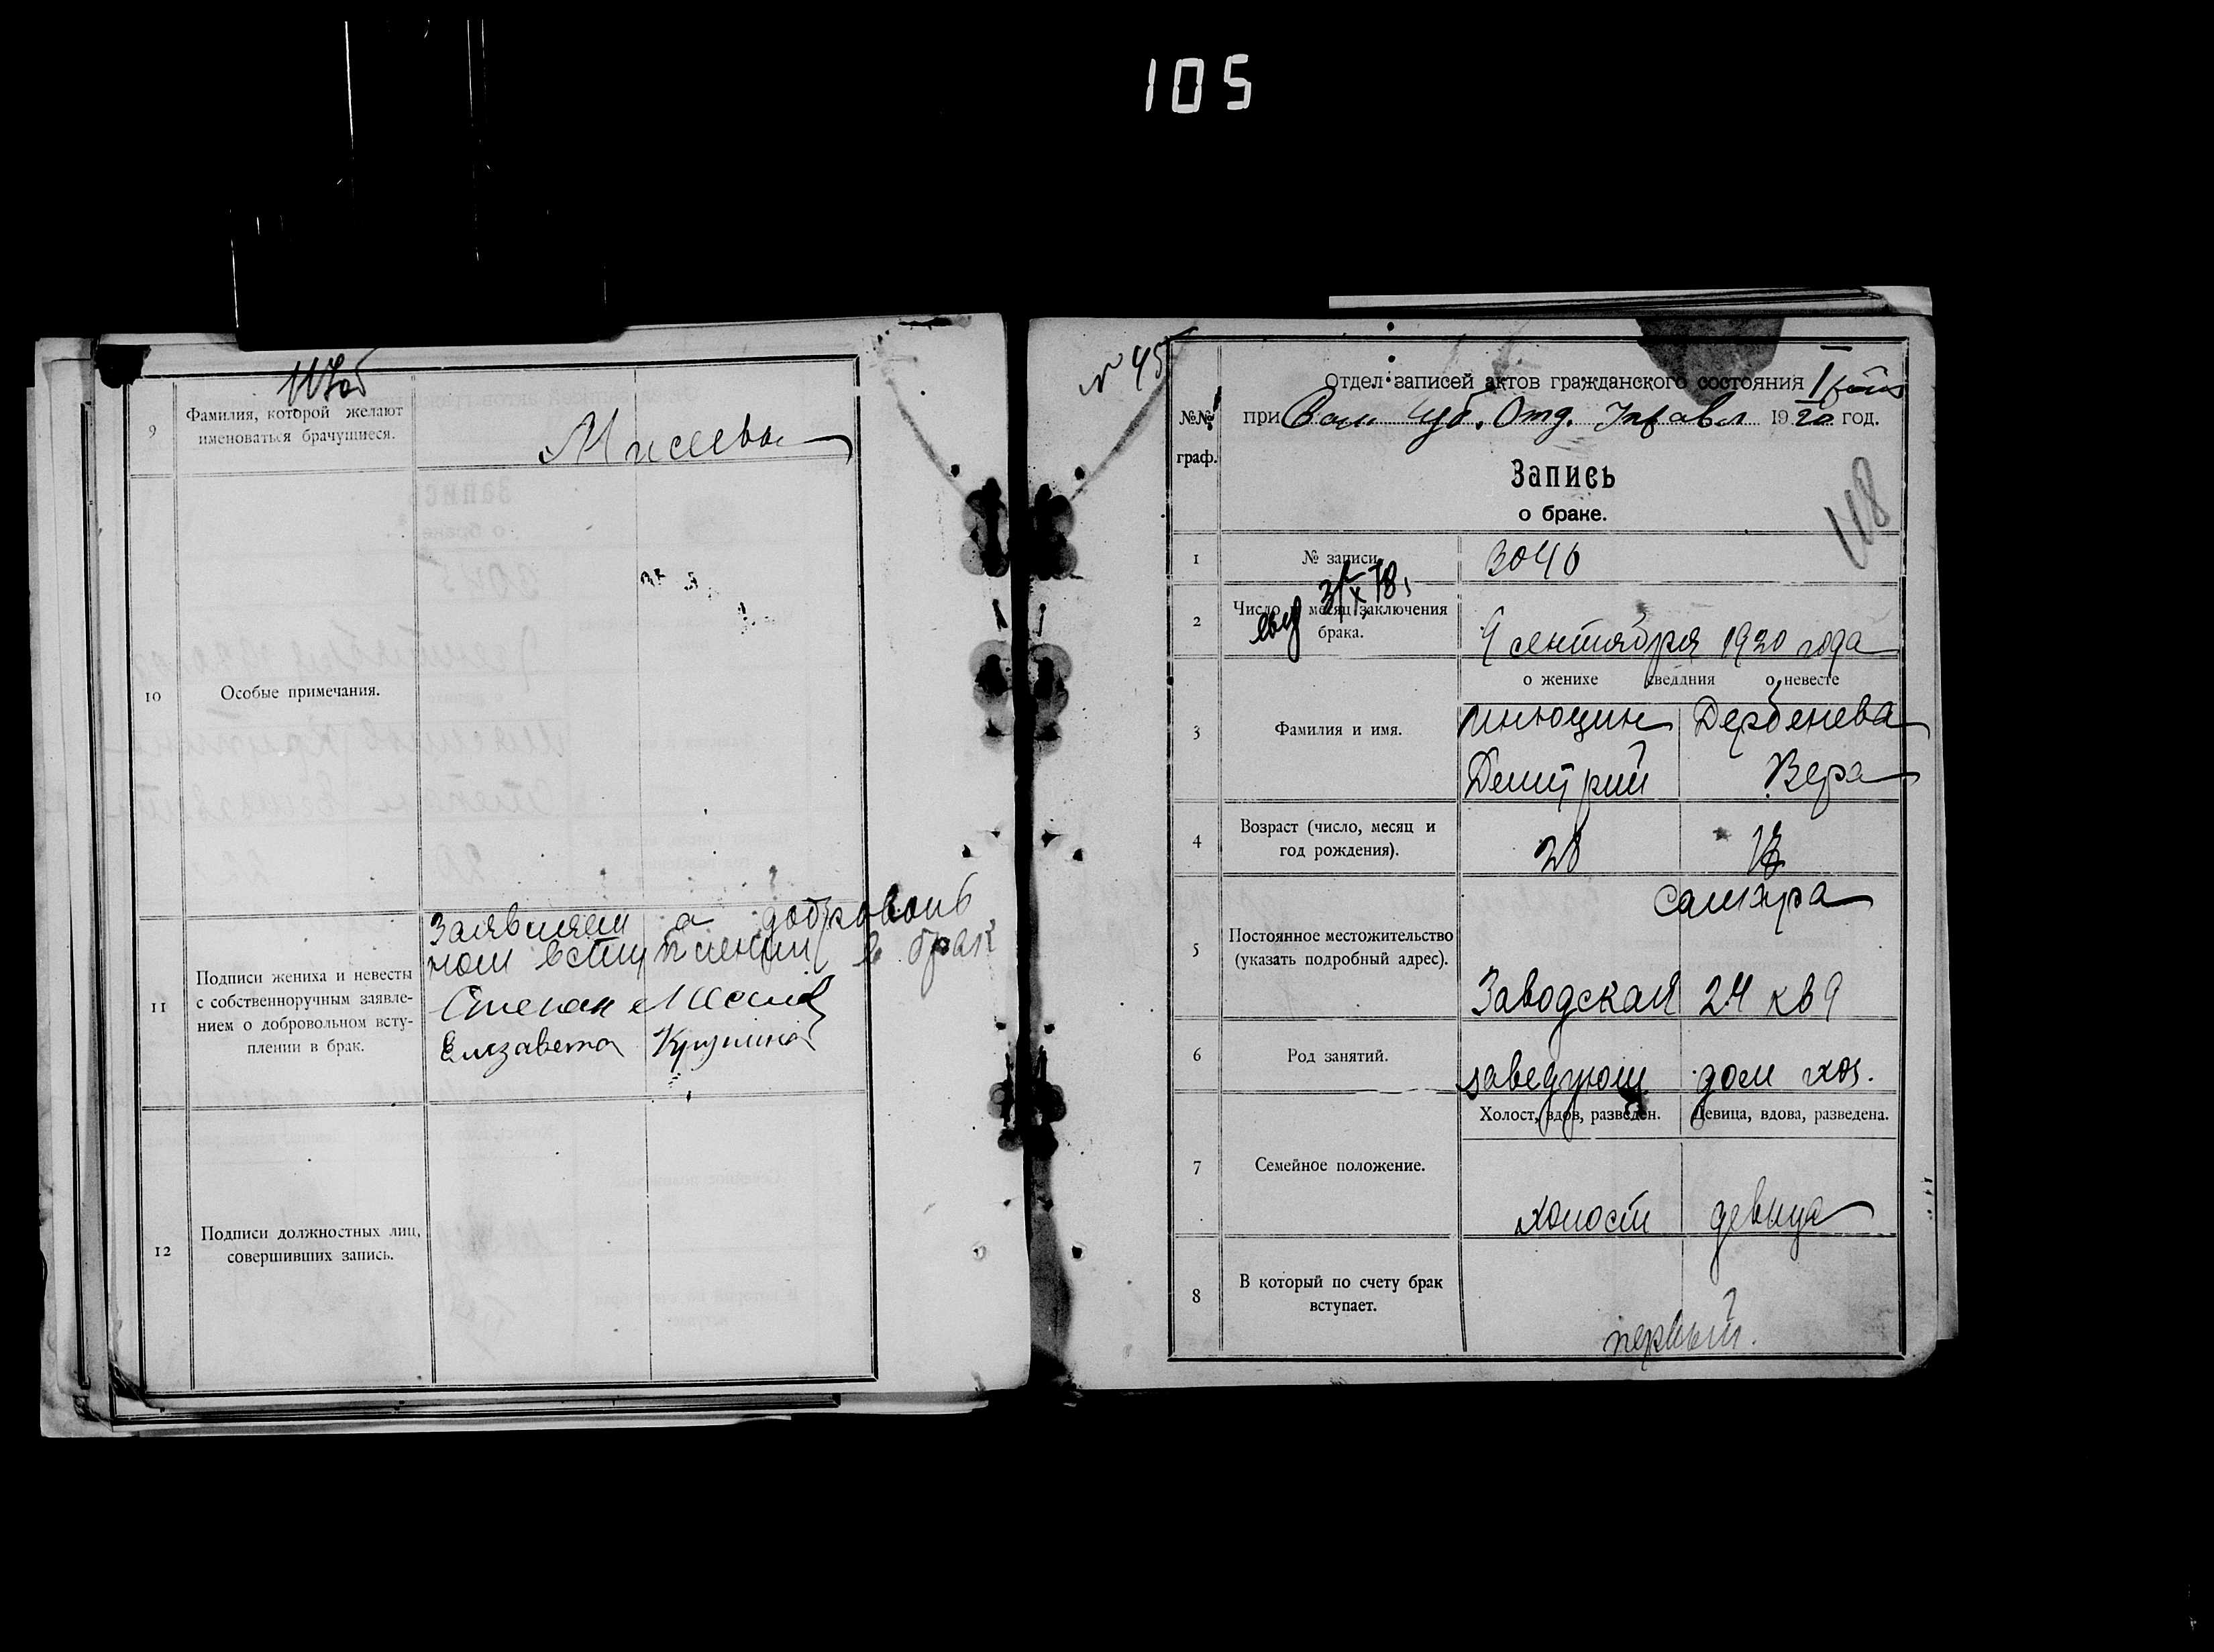 105
9
Фамилия, которой желают
именоваться брачущиеся.
10
Особые примечания.
11
Подписи жениха и невесты
с собственноручным заявле-
нием о добровольном всту-
плении в брак.
Заявляем о доброволь
ном вступлении в брак
Степан
Елизавета
12
Подписи должностных лиц,
совершивших запись.
№ 45
Отдел записей актов гражданского состояния I
№№
граф.
при Сам Губ. Отд. Управл 1920 год.
Запись
о браке.
118
1
№ записи
3046
2
Число и месяц заключения
брака.
9 сентября 1920 года
о женихе сведдния о невесте
3
Фамилия и имя.
Дербенева
Дмитрий Вера
4
Возраст (число, месяц и
год рождения).
28
5
Постоянное местожительство
(указать подробный адрес).
Самара
Заводская 24 кв 9
6
Род занятий.
заведующ дом хоз.
Холост, вдов, разведен. Девица, вдова, разведена.
7
Семейное положение.
холост девица
8
В который по счету брак
вступает.
первый.